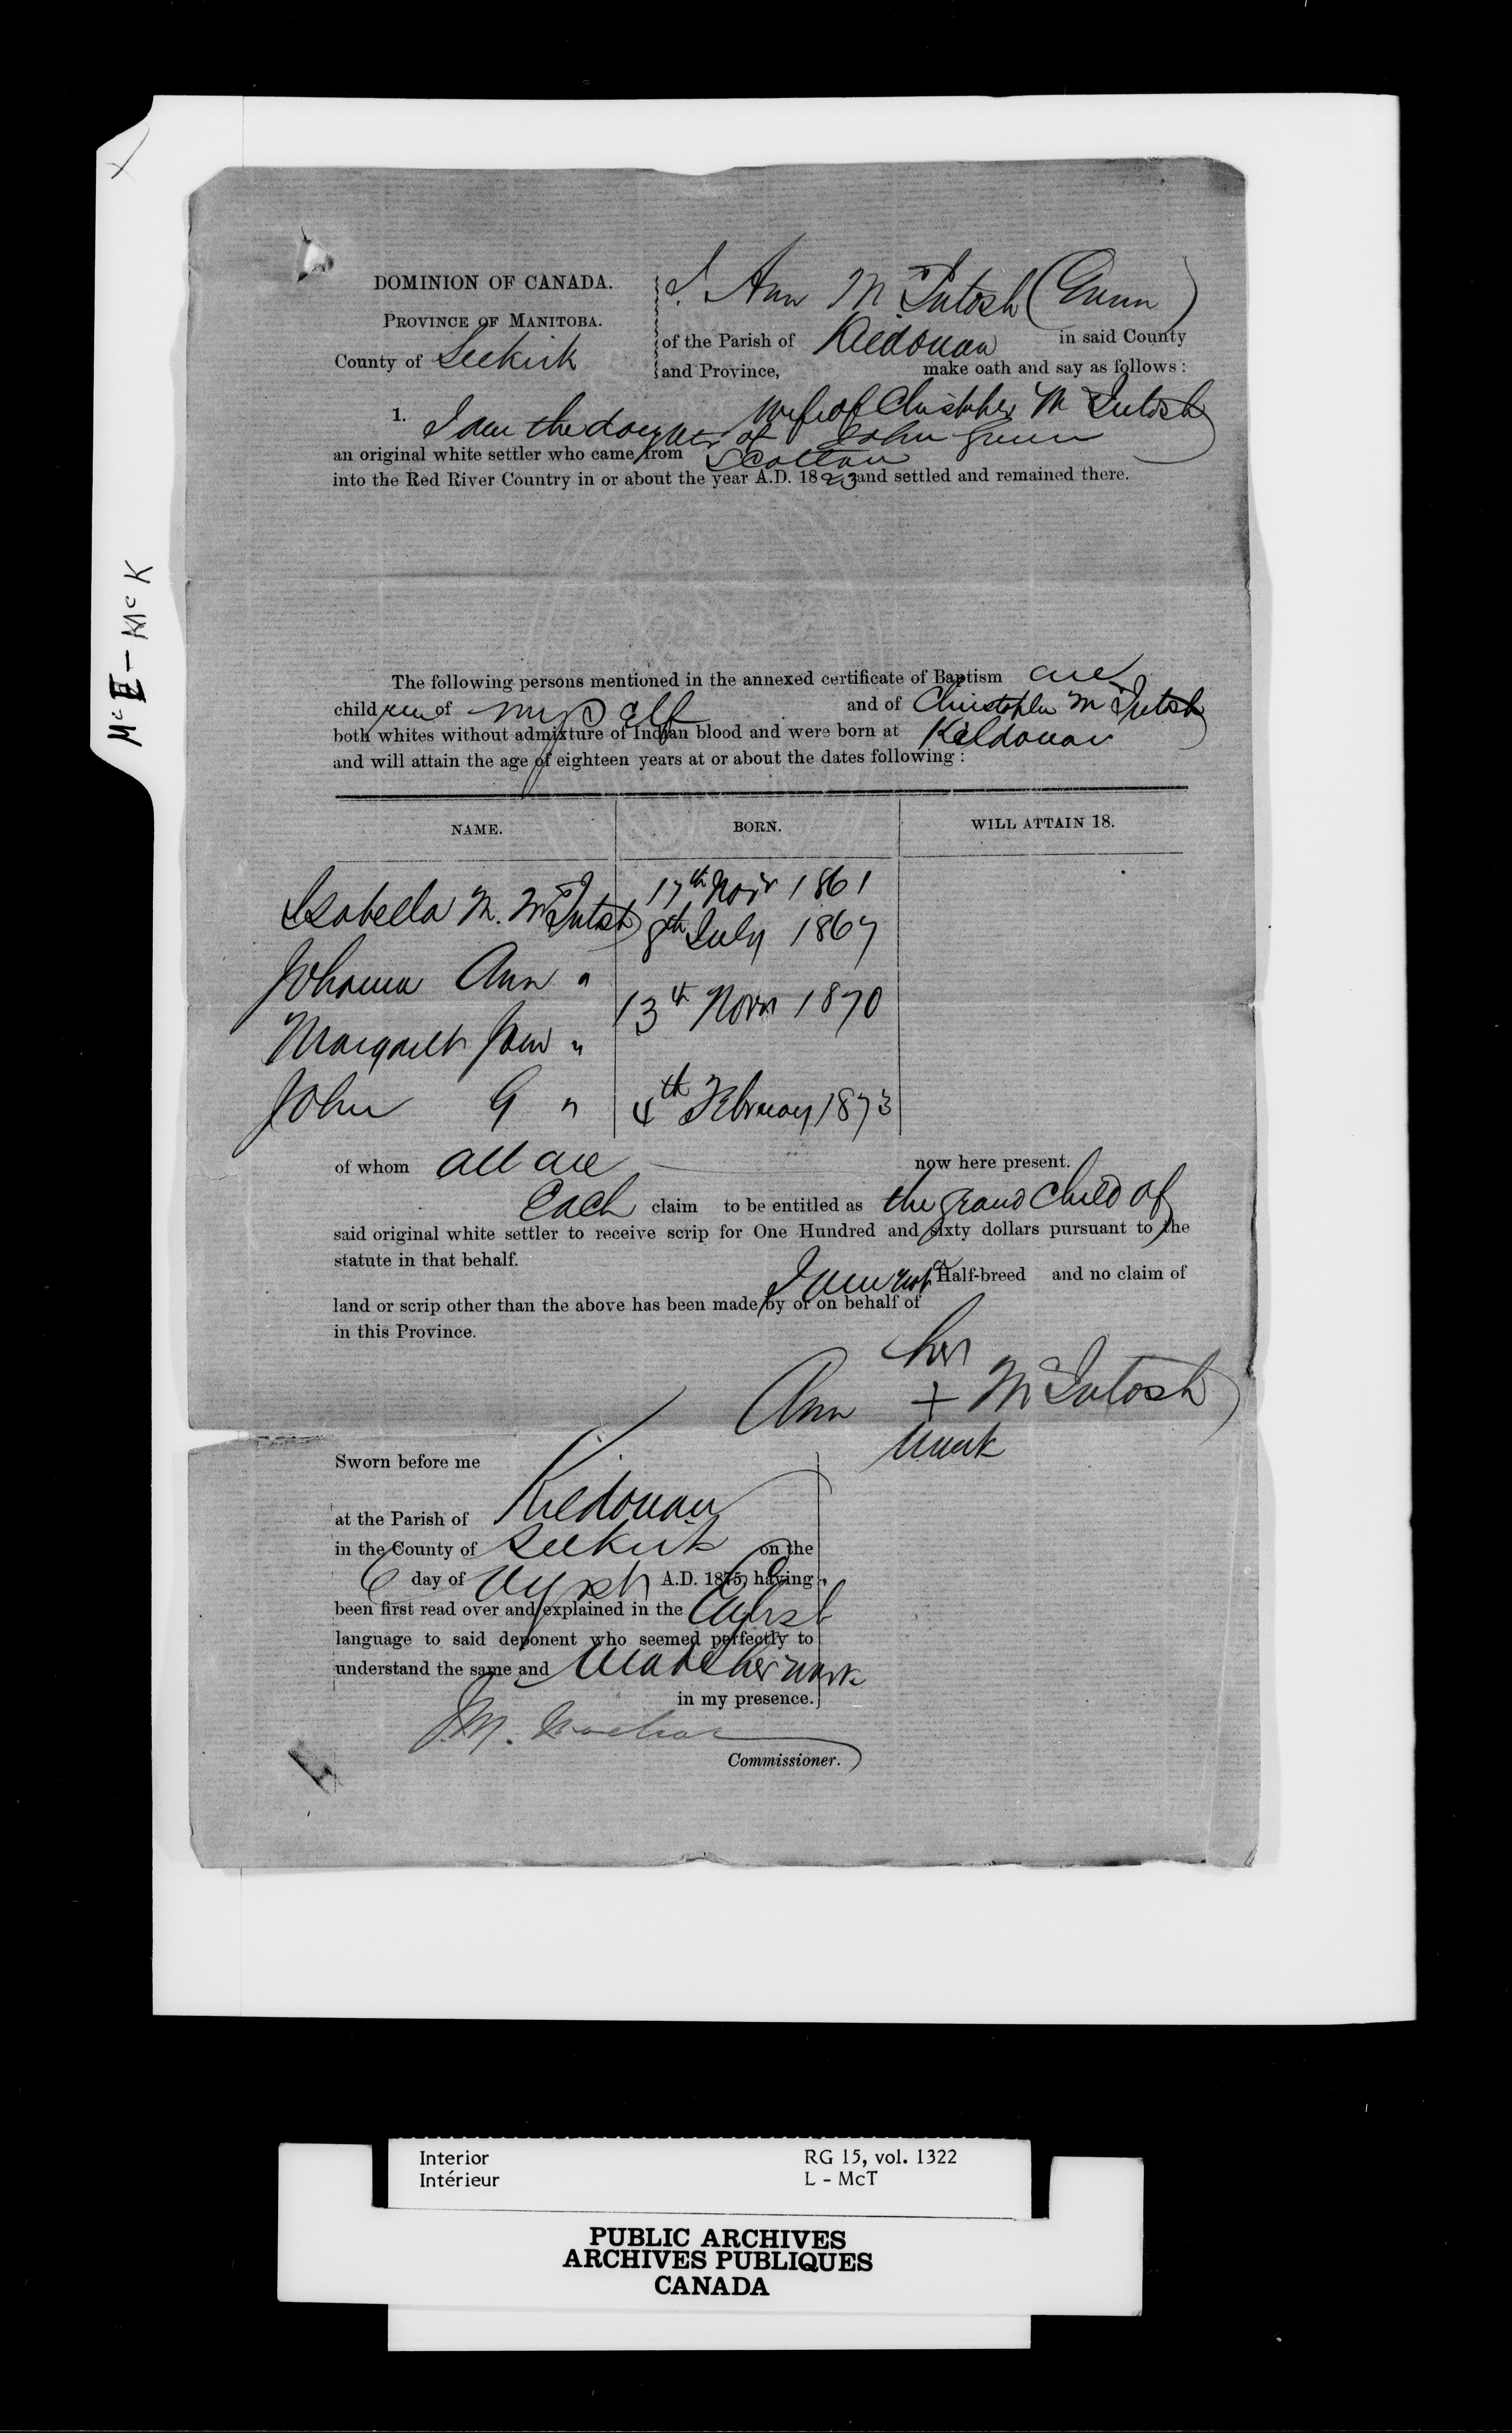 DOMINION OF CANADA.
PROVINCE OF MANITOBA.
County of Selkirk
I. Ann McIntosh (Gunn)
of the Parish of Kildonan in said County
and Province, make oath and say as follows:
wife of Christopher McIntosh
1. I am the daughter of John Gunn
an original white settler who came from Scotlan
into the Red River Country in or about the year A.D. 1823 and settled and remained there.
McI - McK
The following persons mentioned in the annexed certificate of Baptism are
children of myself and of Christopher McIntosh
both whites without admixture of Indian blood and were born at Kildonan
and will attain the age of eighteen years at or about the dates following:
NAME. BORN. WILL ATTAIN 18.
Isabella M. McIntosh 17th Novr 1861
Johanna Ann " 8th July 1867
Margaret Jane " 13th Novr 1870
John G " 4th February 1873
of whom all are now here present.
Each claim to be entitled as the grand child of
said original white settler to receive scrip for One Hundred and sixty dollars pursuant to the
statute in that behalf.
I am not a Half-breed and no claim of
land or scrip other than the above has been made by or on behalf of
in this Province.
her
Ann + McIntosh
mark
Sworn before me
at the Parish of Kildonan
in the County of Selkirk on the
6 day of A.D. 1875, having
been first read over and explained in the
language to said deponent who seemed perfectly to
understand the same and made her mark
in my presence.
J.M. Machar
Commissioner.
Interior RG 15, vol. 1322
Intérieur L - McT
PUBLIC ARCHIVES
ARCHIVES PUBLIQUES
CANADA